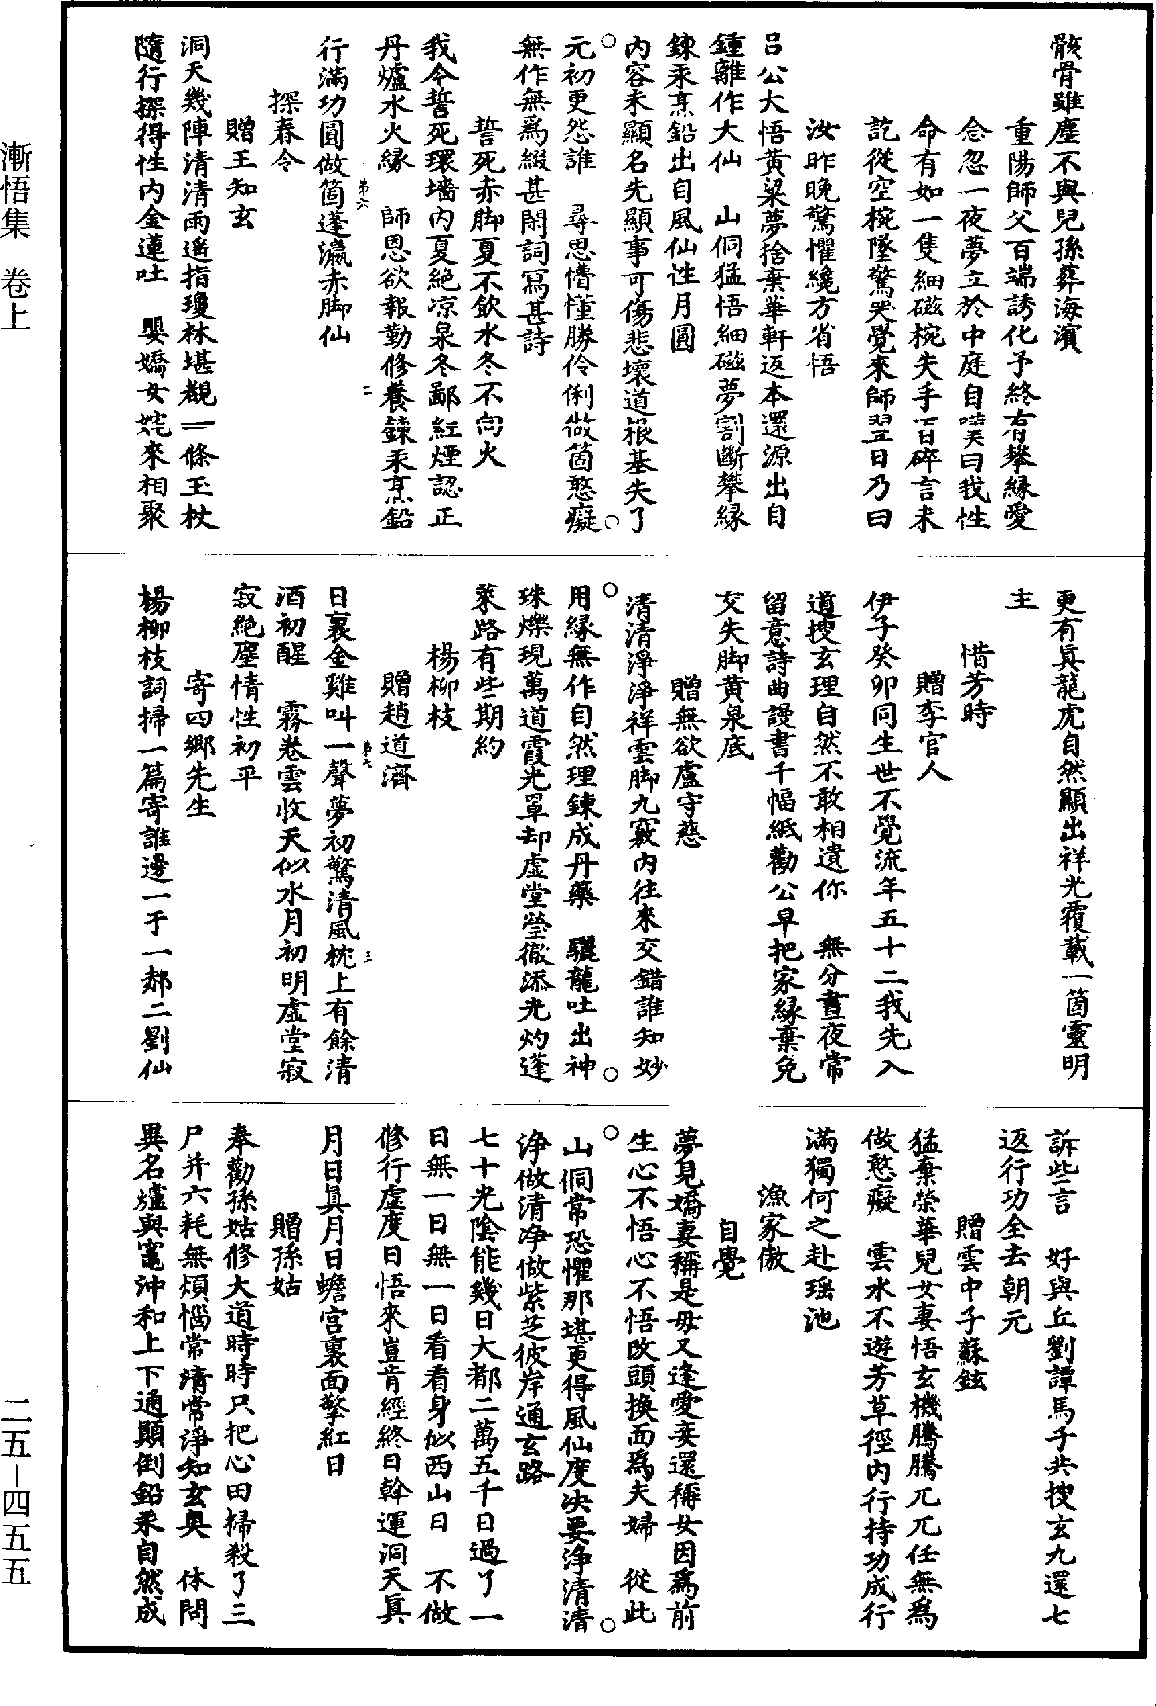 骸骨雖塵不與兒孫葬海濱
重陽師父百端誘化予終有攀緣愛
念忽一夜夢立於中庭自嘆曰我性
命有如一隻細磁椀失手百碎言未
訖從空椀墜驚哭覺來師翌日乃曰
汝昨晚驚懼纔方省悟
呂公大悟黃粱夢捨棄華軒返本還源出自
鍾離作大仙　山侗猛悟細磁夢割斷攀緣
鍊汞烹鉛出自風仙性月圓
內容未顯名先顯事可傷悲壞道根基失了
元初更怨誰　尋思懵懂勝伶俐做箇憨癡
無作無爲綴甚閑詞寫甚詩
誓死赤脚夏不飲水冬不向火
我今誓死環墻內夏絕凉泉冬鄙紅煙認正
丹爐水火緣　師恩欲報勤修養鍊汞烹鉛
行滿功圓做箇蓬瀛赤脚仙
探春令
贈王知玄
洞天幾陣清清雨遙指瓊林堪觀一條王杖
隨行探得性內金蓮吐　嬰嬌女姹來相聚
更有眞龍虎自然顯出祥光覆載一箇靈明
主
惜芳時
贈李官人
伊予癸卯同生世不覺流年五十二我先入
道搜玄理自然不敢相遺你　無分晝夜常
留意詩曲謾書千幅紙勸公早把家緣棄免
交失脚黃泉底
贈無欲盧守慈
清清淨淨祥雲脚九竅內往來交錯誰知妙
用緣無作自然理鍊成丹藥　驪龍吐出神
珠爍現萬道霞光罩却虛堂瑩徹添光灼蓬
萊路有些期約
楊柳枝
贈趙道濟
日裏金雞叫一聲夢初驚清風枕上有餘清
酒初醒　霧卷雲收天似水月初明虛堂寂
寂絕塵情性初平
寄四鄉先生
楊柳枝詞掃一篇寄誰邊一于一郝二劉仙
訴些言　好與丘劉譚馬子共搜玄九還七
返行功全去朝元
贈雲中子蘇鉉
猛棄榮華兒女妻悟玄機騰騰兀兀任無爲
做憨癡　雲水不遊芳草徑內行持功成行
滿獨何之赴瑤池
漁家傲
自覺
夢見嬌妻稱是母又逢愛妾還稱女因爲前
生心不悟心不悟改頭換面爲夫婦　從此
山侗常恐懼那堪更得風仙度決要淨清清
淨做清淨做紫芝彼岸通玄路
七十光陰能幾日大都二萬五千日過了一
日無一日無一日看看身似西山日　不做
修行虛度日悟來豈肯經終日斡運洞天眞
月日眞月日蟾宮裏面擎紅日
贈孫姑
奉勸孫姑修大道時時只把心田掃殺了三
尸并六耗無煩惱常清常淨知玄奧　休問
異名爐與竈沖和上下通顛倒鉛汞自然成
漸悟集　卷上
二五－四五五